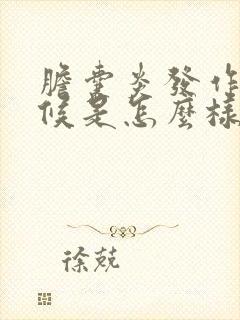 膽囊炎發作
候是怎麼樣
徐兢